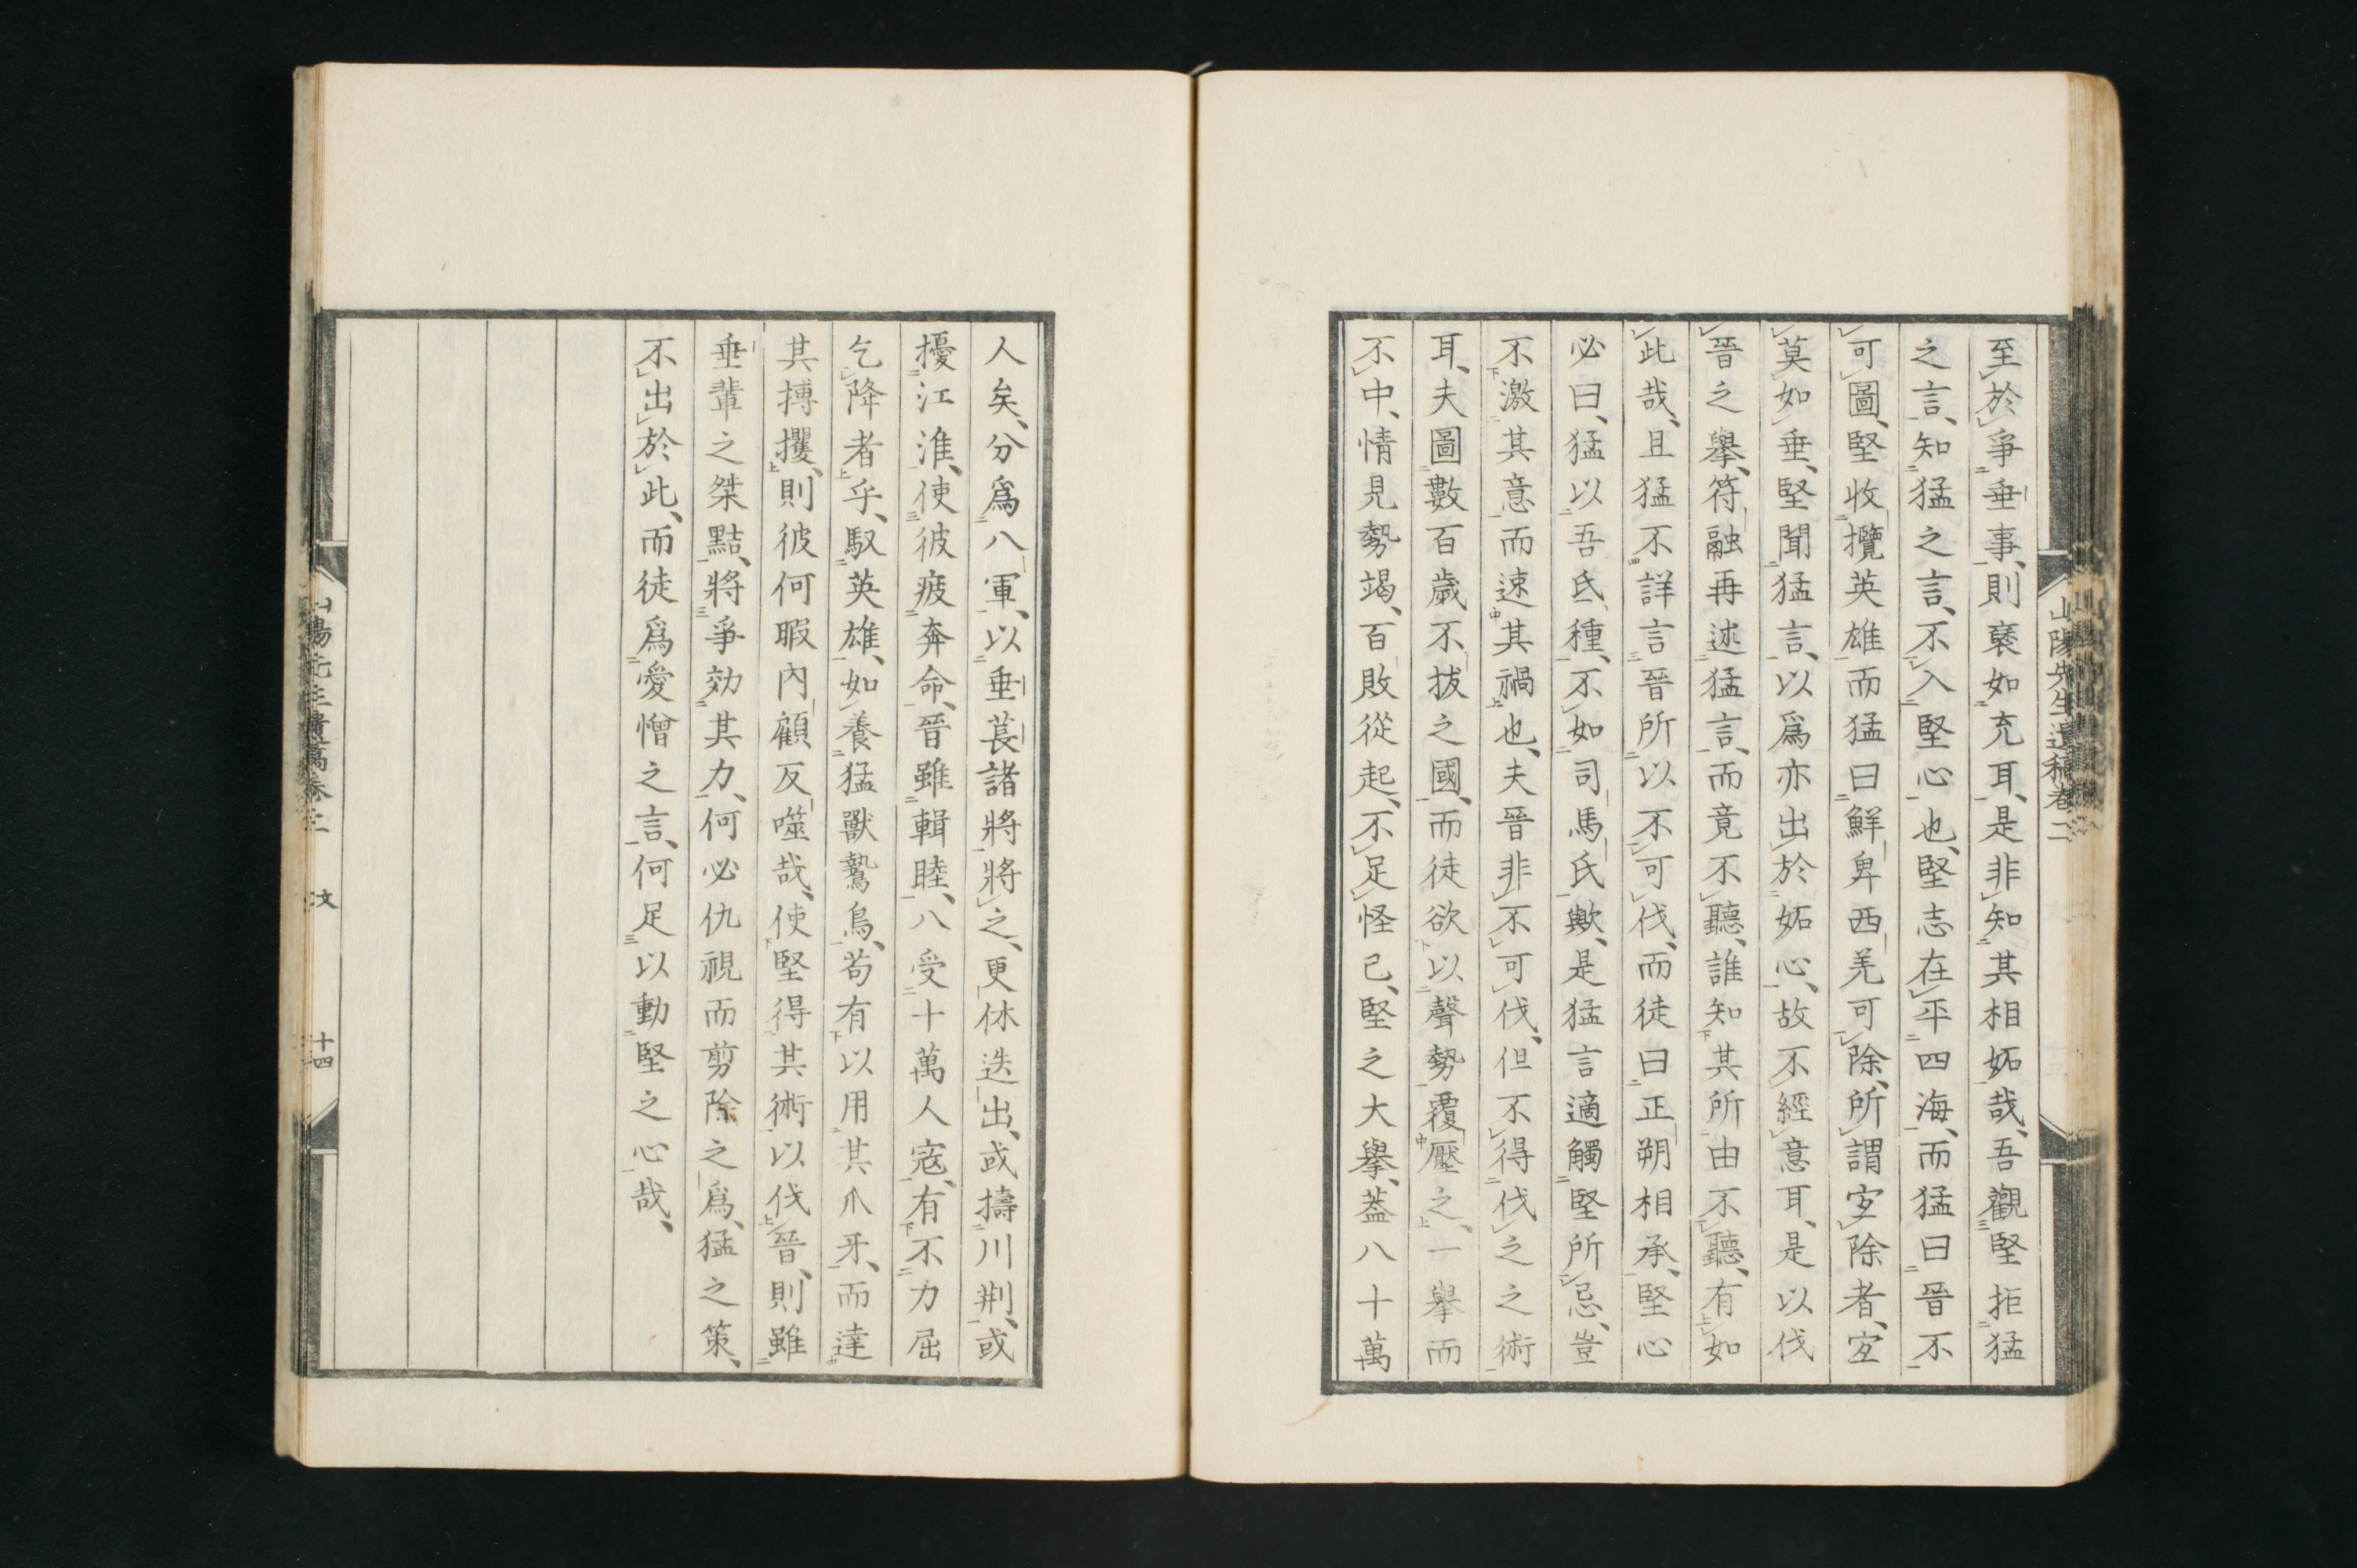 山陽先生遺稿卷二
至於爭垂事、則褎如充耳、是非知其相妬哉、吾觀堅拒猛
之言、知猛之言、不入堅心也、堅志在平四海、而猛曰晉不
可圖、堅收攬英雄、而猛曰鮮卑西羌可除、所謂宜除者、宜
莫如垂、堅聞猛言、以爲亦出於妬心、故不經意耳、是以伐
晉之擧、符融再述猛言、而竟不聽、誰知其所由不聽、有如
此哉、且猛不詳言晉所以不可伐、而徒曰正朔相承、堅心
必曰、猛以吾氐種、不如司馬氏歟、是猛言適觸堅所忌、豈
不激其意而速其禍也、夫晉非不可伐、但不得伐之之術
耳、夫圖數百歲不拔之國、而徒欲以聲勢覆壓之、一擧而
不中、情見勢竭、百敗從起、不足怪已、堅之大擧、蓋八十萬
人矣、分爲八軍、以垂萇諸將將之、更休迭出、或擣川荆、或
擾江淮、使彼疲奔命、晉雖輯睦、八受十萬人寇、有不力屈
乞降者乎、馭英雄、如養猛獸鷙鳥、苟有以用其爪牙、而達
其搏攫、則彼何暇內顧反噬哉、使堅得其術以伐晉、則雖
垂輩之桀黠、將爭効其力、何必仇視而剪除之爲、猛之策、
不出於此、而徒爲愛憎之言、何足以動堅之心哉、
山陽先生遺稿卷二 文 十四